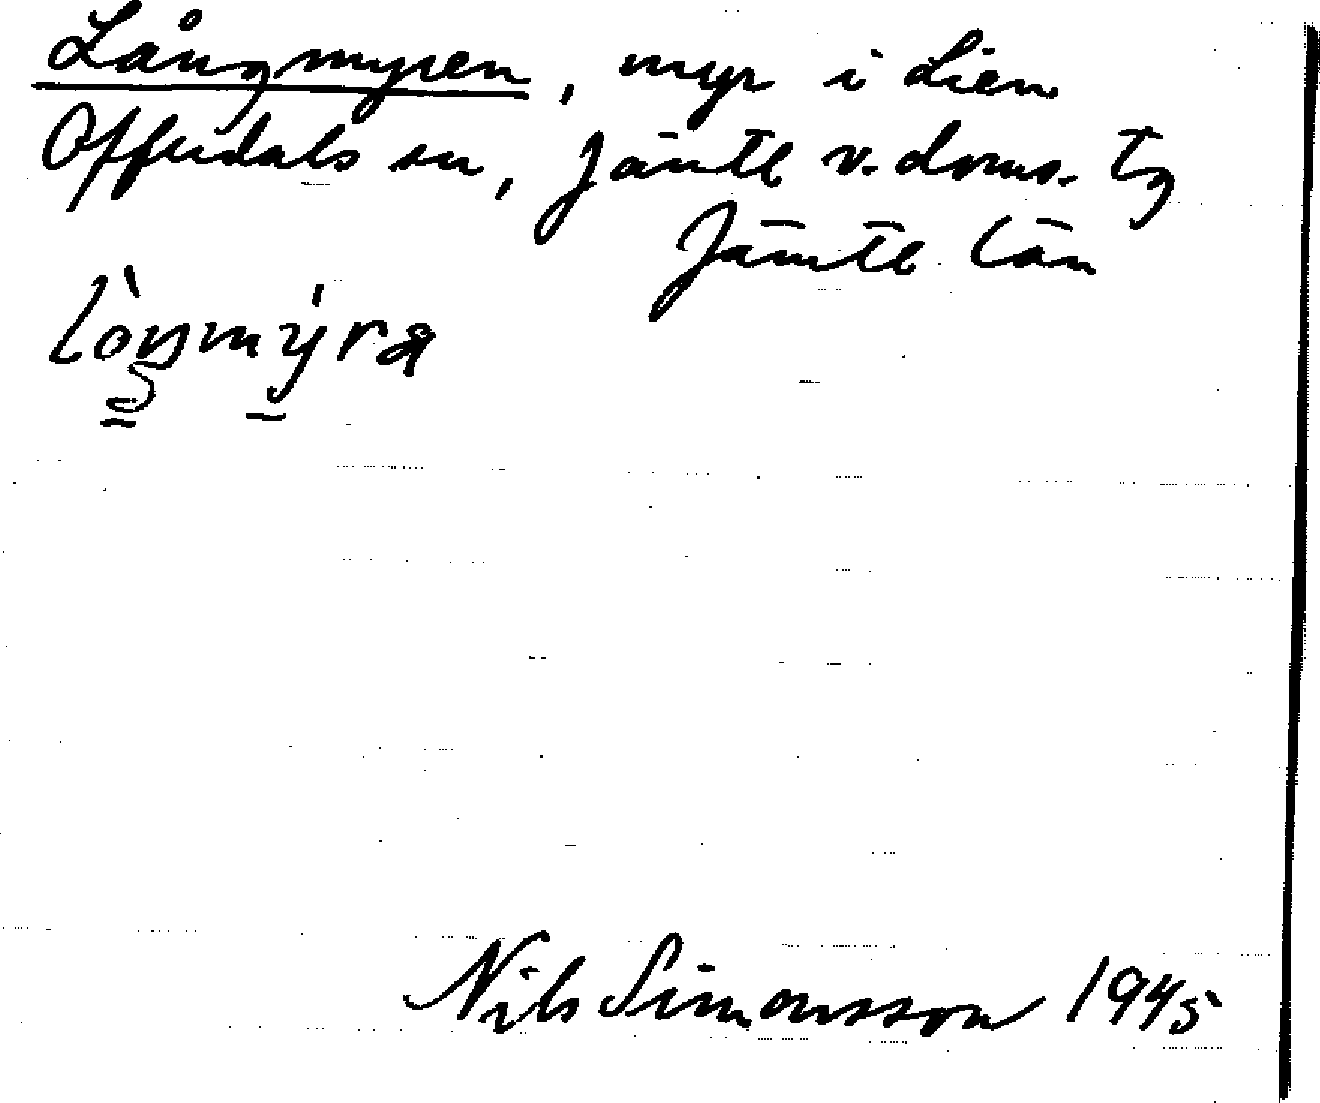 Långmyren, myr i Lien
Offerdals sn, Jämtl v. doms. tg
Jämtl län
lòŋmýra
Nils Simonsson 1945